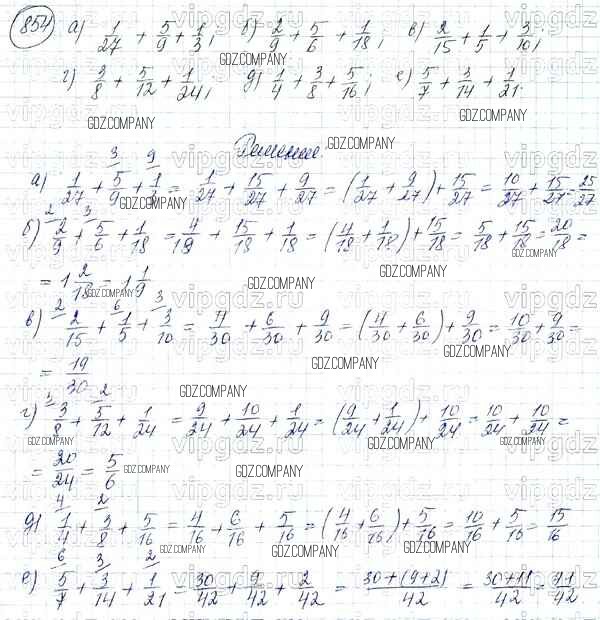 854 а) 1/27 + 5/9 + 1/3; б) 2/9 + 5/6 + 1/18; в) 2/15 + 1/5 + 3/10;
г) 3/8 + 5/12 + 1/24; д) 1/4 + 3/8 + 5/16; е) 5/7 + 3/14 + 1/21.
Решение.
а) 1/27 + 5/9 + 1/3 = 1/27 + 15/27 + 9/27 = (1/27 + 9/27) + 15/27 = 10/27 + 15/27 = 25/27
б) 2/9 + 5/6 + 1/18 = 4/18 + 15/18 + 1/18 = (4/18 + 1/18) + 15/18 = 5/18 + 15/18 = 20/18 =
= 1 2/18 = 1 1/9
в) 2/15 + 1/5 + 3/10 = 4/30 + 6/30 + 9/30 = (4/30 + 6/30) + 9/30 = 10/30 + 9/30 =
= 19/30
г) 3/8 + 5/12 + 1/24 = 9/24 + 10/24 + 1/24 = (9/24 + 1/24) + 10/24 = 10/24 + 10/24 =
= 20/24 = 5/6
д) 1/4 + 3/8 + 5/16 = 4/16 + 6/16 + 5/16 = (4/16 + 6/16) + 5/16 = 10/16 + 5/16 = 15/16
е) 5/7 + 3/14 + 1/21 = 30/42 + 9/42 + 2/42 = 30+(9+2)/42 = 30+11/42 = 41/42
vipgdz.ru
GDZ.COMPANY